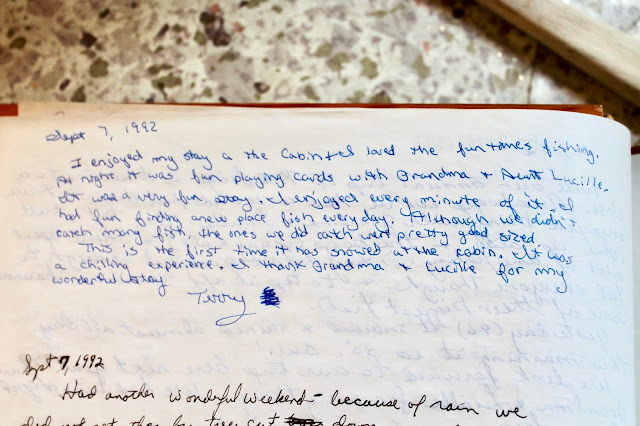 Sept 7, 1992
I enjoyed my stay a the Cabin & I loved the fun times fishing.
At night it was fun playing cards with Grandma & Aunt Lucille.
It was a very fun stay. I enjoyed every minute of it. I
had fun finding a new place fish every day. Although we didn't
catch many fish, the ones we did catch were pretty good sized.
This is the first time it has snowed at the cabin. It was
a chilling experience. I thank Grandma & Lucille for my
wonderful stay
Terry
Sept 7, 1992
Had another wonderful weekend - because of rain we
did not get the trees cut down